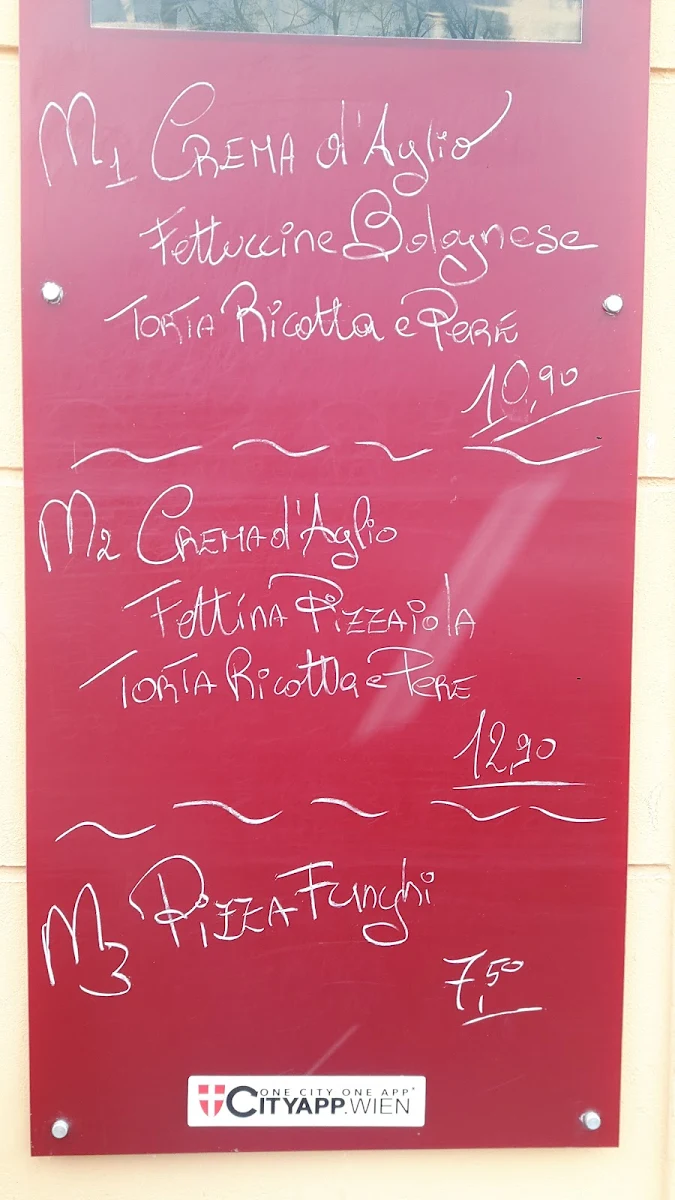 M1 CREMA d'Aglio
Fettuccine Bolognese
TORTA Ricotta e PERE
10,90
M2 CREMA d'Aglio
Fettina PIZZAiolA
TORTA Ricotta e PERE
12,90
M3 PIZZA Funghi
7,50
ONE CITY ONE APP
CITYAPP.WIEN